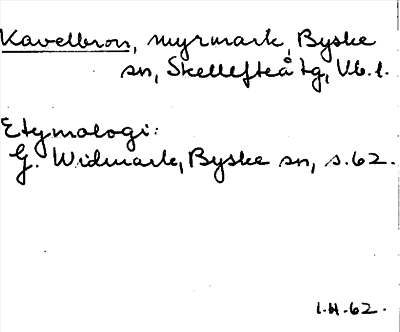 Kavelbron, myrmark, Byske
sn, Skellefteå tg, Vb. l.
Etymologi:
G. Widmark, Byske sn, s. 62.
1.H.62.